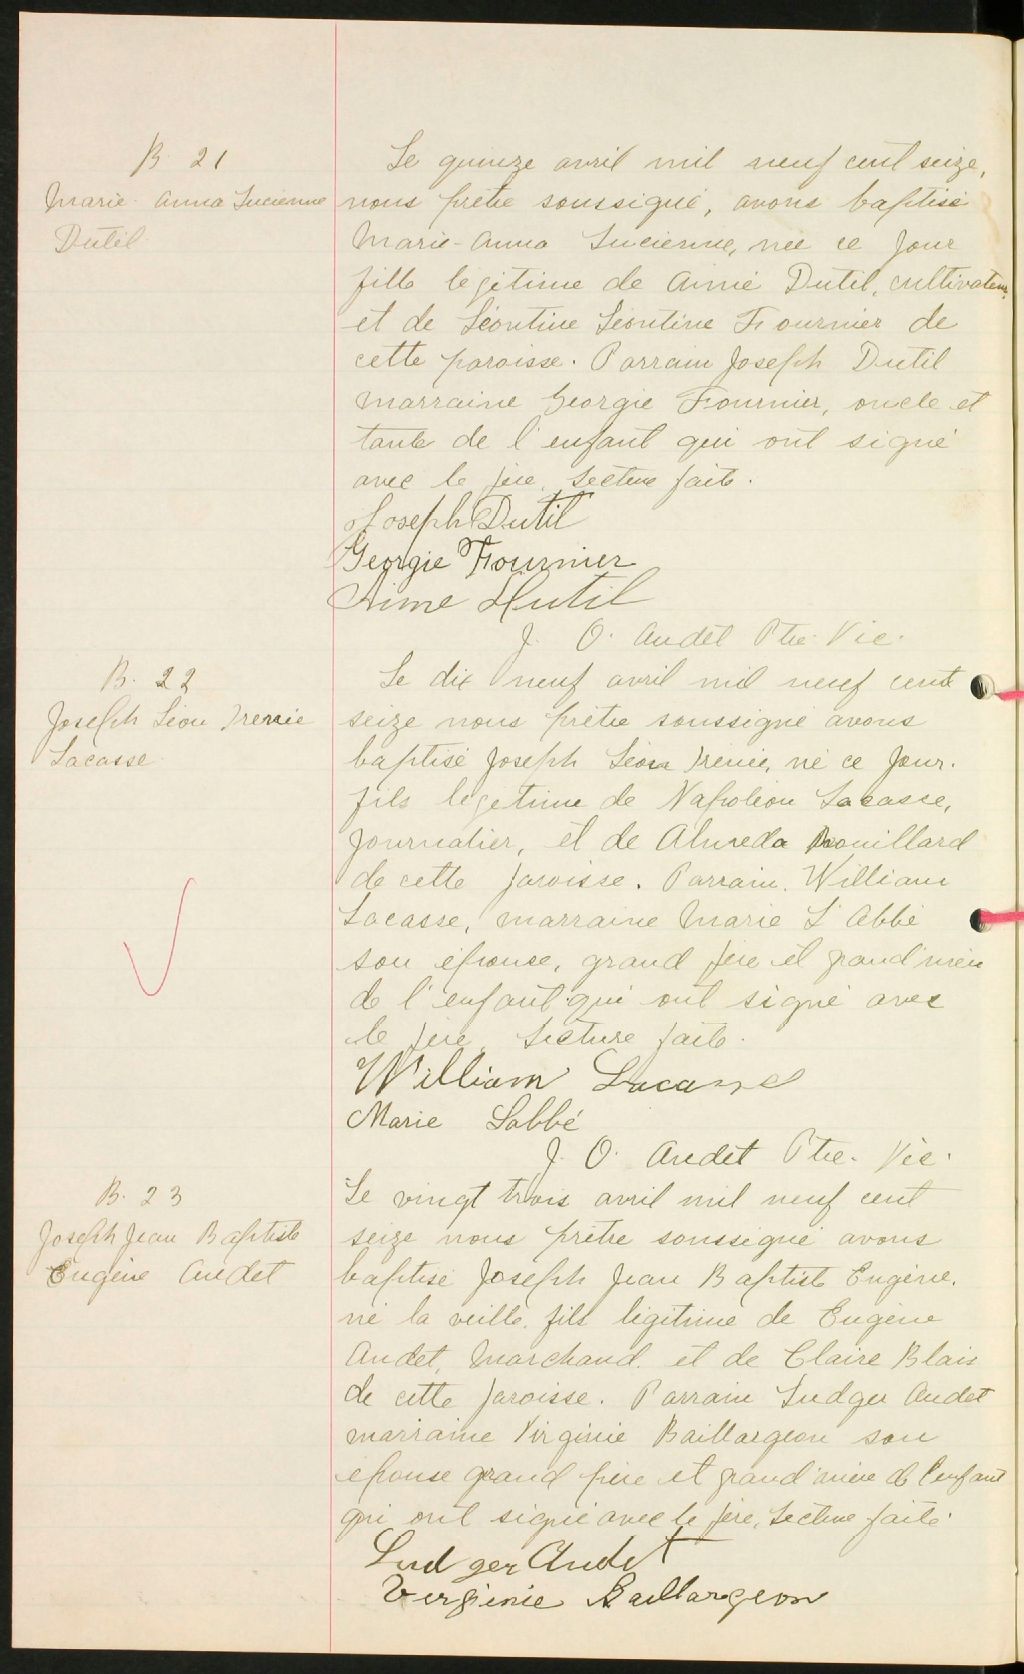 B. 21
Marie-Anna Lucienne
Dutil
Le quinze avril mil neuf cent seize,
nous prêtre soussigné, avons baptisé
Marie-Anna Lucienne, née ce jour
fille légitime de Aimé Dutil, cultivateur,
et de Léontine Léontine Fournier de
cette paroisse. Parrain Joseph Dutil
marraine Georgie Fournier, oncle et
tante de l'enfant qui ont signé
avec le père. Lecture faite.
Joseph Dutil
Georgie Fournier
Aime Dutil
J. O. Audet Ptre. Vic.
B. 22
Joseph Léon Irenée
Lacasse
Le dix neuf avril mil neuf cent
seize nous prêtre soussigné avons
baptisé Joseph Léon Irénée, né ce jour.
fils légitime de Napoléon Lacasse,
journalier, et de Almeda Drouillard
de cette paroisse. Parrain. William
Lacasse, marraine Marie L'Abbé
son épouse, grand père et grand'mère
de l'enfant qui ont signé avec
le père. Lecture faite.
William Lacasse
Marie Labbé
J. O. Audet Ptre. Vic.
B. 23
Joseph Jean Baptiste
Eugène Audet
Le vingt trois avril mil neuf cent
seize nous prêtre soussigné avons
baptisé Joseph Jean Baptiste Eugène.
né la veille, fils légitime de Eugène
Audet, Marchand, et de Claire Blais
de cette paroisse. Parrain Ludger Audet
marraine Virginie Baillargeon son
épouse grand père et grand'mère de l'enfant
qui ont signé avec le père, Lecture faite.
Ludger Audet
Verginie Baillargeon